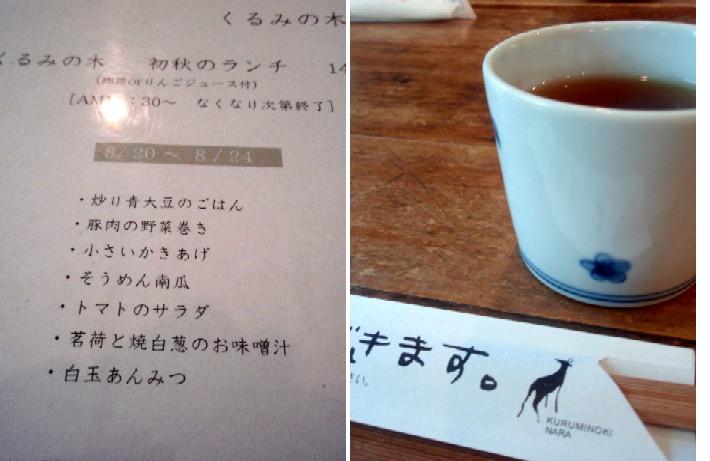 くるみの木
くるみの木　初秋のランチ　14
(珈琲orりんごジュース付)
[AM :30～　なくなり次第終了]
8/20～8/24
・炒り青大豆のごはん
・豚肉の野菜巻き
・小さいかきあげ
・そうめん南瓜
・トマトのサラダ
・茗荷と焼白葱のお味噌汁
・白玉あんみつ
きます。
KURUMINOKI
NARA